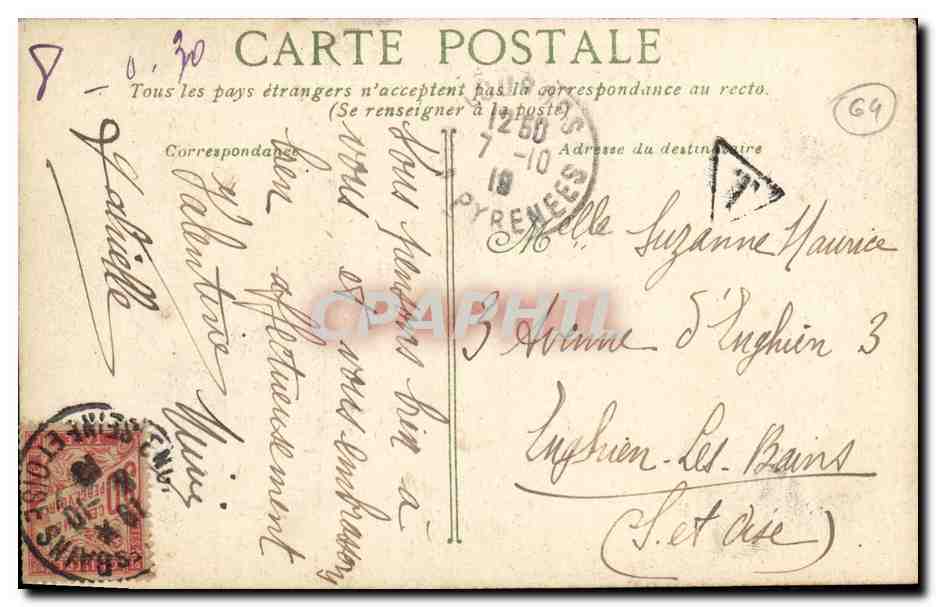 8 - 0.30
CARTE POSTALE
Tous les pays étrangers n'acceptent pas la correspondance au recto.
(Se renseigner à la poste)
Correspondance
Adresse du destinataire
64
12 50
7 -10
PYRENEES
T
Nous pensons bien à
vous et vous embrassons
bien affectueusement
Valentine
Gabrielle
Melle Suzanne Maurice
3 Avenue d'Enghien 3
Enghien-Les-Bains
(S. et Oise)
CPAPHIL
SEINE ET OISE